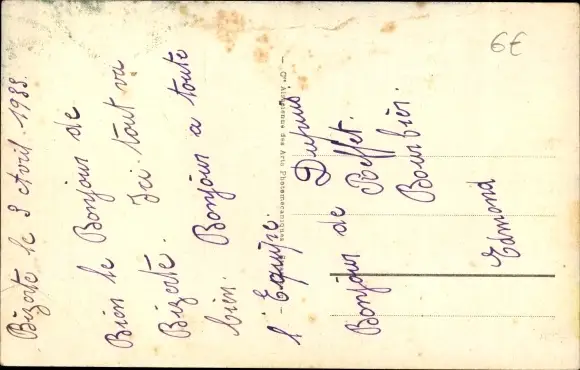 Bizerte le 8 Avril. 1938.
Bien le Bonjour de
Bizerte. Ici. tout va
bien. Bonjour a toute
l'Equipe.
Dupuis
Bonjour de Poffet.
Bourbier.
Edmond
6€
Cie Alsacienne des Arts Photomécaniques